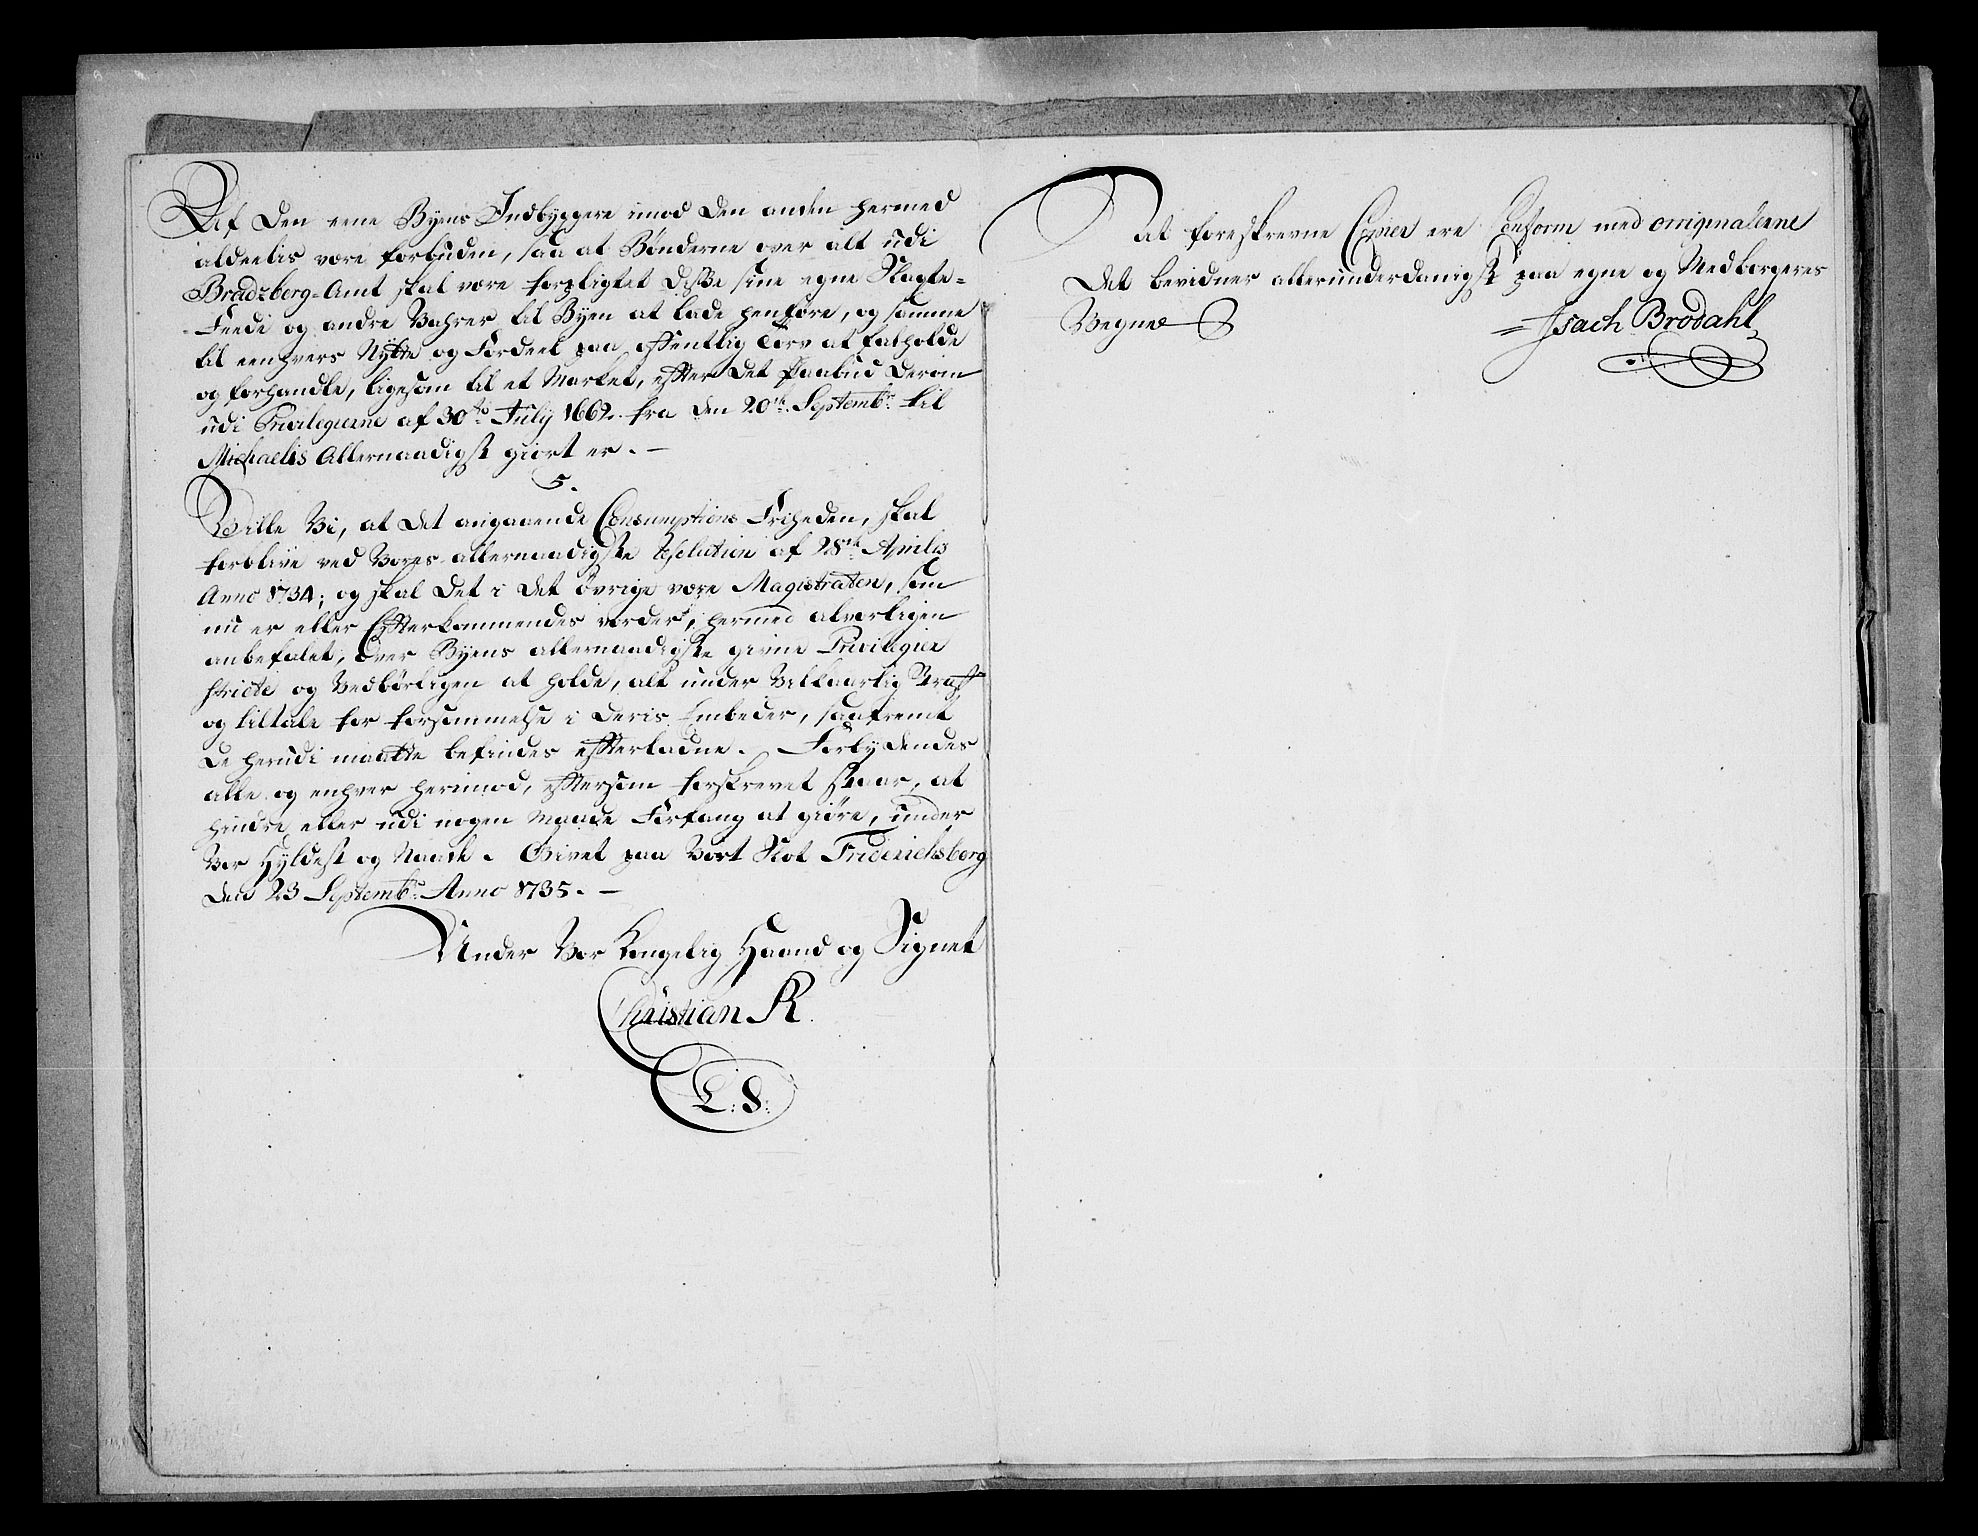 Af den eene Byens Indbyggere imod den anden hermed
aldeelis være forbuden, saa at Bønderne over alt udi
Bradzberg-Amt skal være forpligtet disse sine egne Slagte-
Feede og andre Vahrer til Byen at lade henføre, og samme
til eenhvers Nytte og Fordeel paa offentlig Torv at falholde
og forhandle, ligesom til et Market, efter det Paabud derom
udi Privilegierne af 30te July 1662. fra den 20de Septembr. til
Michaelis Allernaadigst giort er. —
5.
Ville Vi, at det angaaende Consumptions Friheden, skal
forblive ved Vores allernaadigste Resolution af 28de Aprilis
Anno 1734; og skal det i det øvrige være Magistraten, som
nu er eller Efterkommendes vorder, hermed alvorligen
anbefalet, over Byens allernaadigste givne Privilegier
stricte og Vedbørligen at holde, alt under Vilkaarlig Straf
og tiltale for forsømmelse i deris Embeder, saafremt
de herudi maatte befindes efterladne. Forbydendes
alle og enhver herimod, eftersom forskrevet staar, at
hindre eller udi nogen Maade Forfang at giøre, under
Vor Hyldest og Naade. Givet paa Vort Slot Friderichsberg
den 23 Septembr. Anno 1735. —
Under Vor Kongelig Haand og Signet
Christian R.
L: S:
At foreskrevne Copier ere Conform med originalerne
Det bevidner allerunderdanigst paa egne og Medborgeres
Vegne
Isach Brodahl